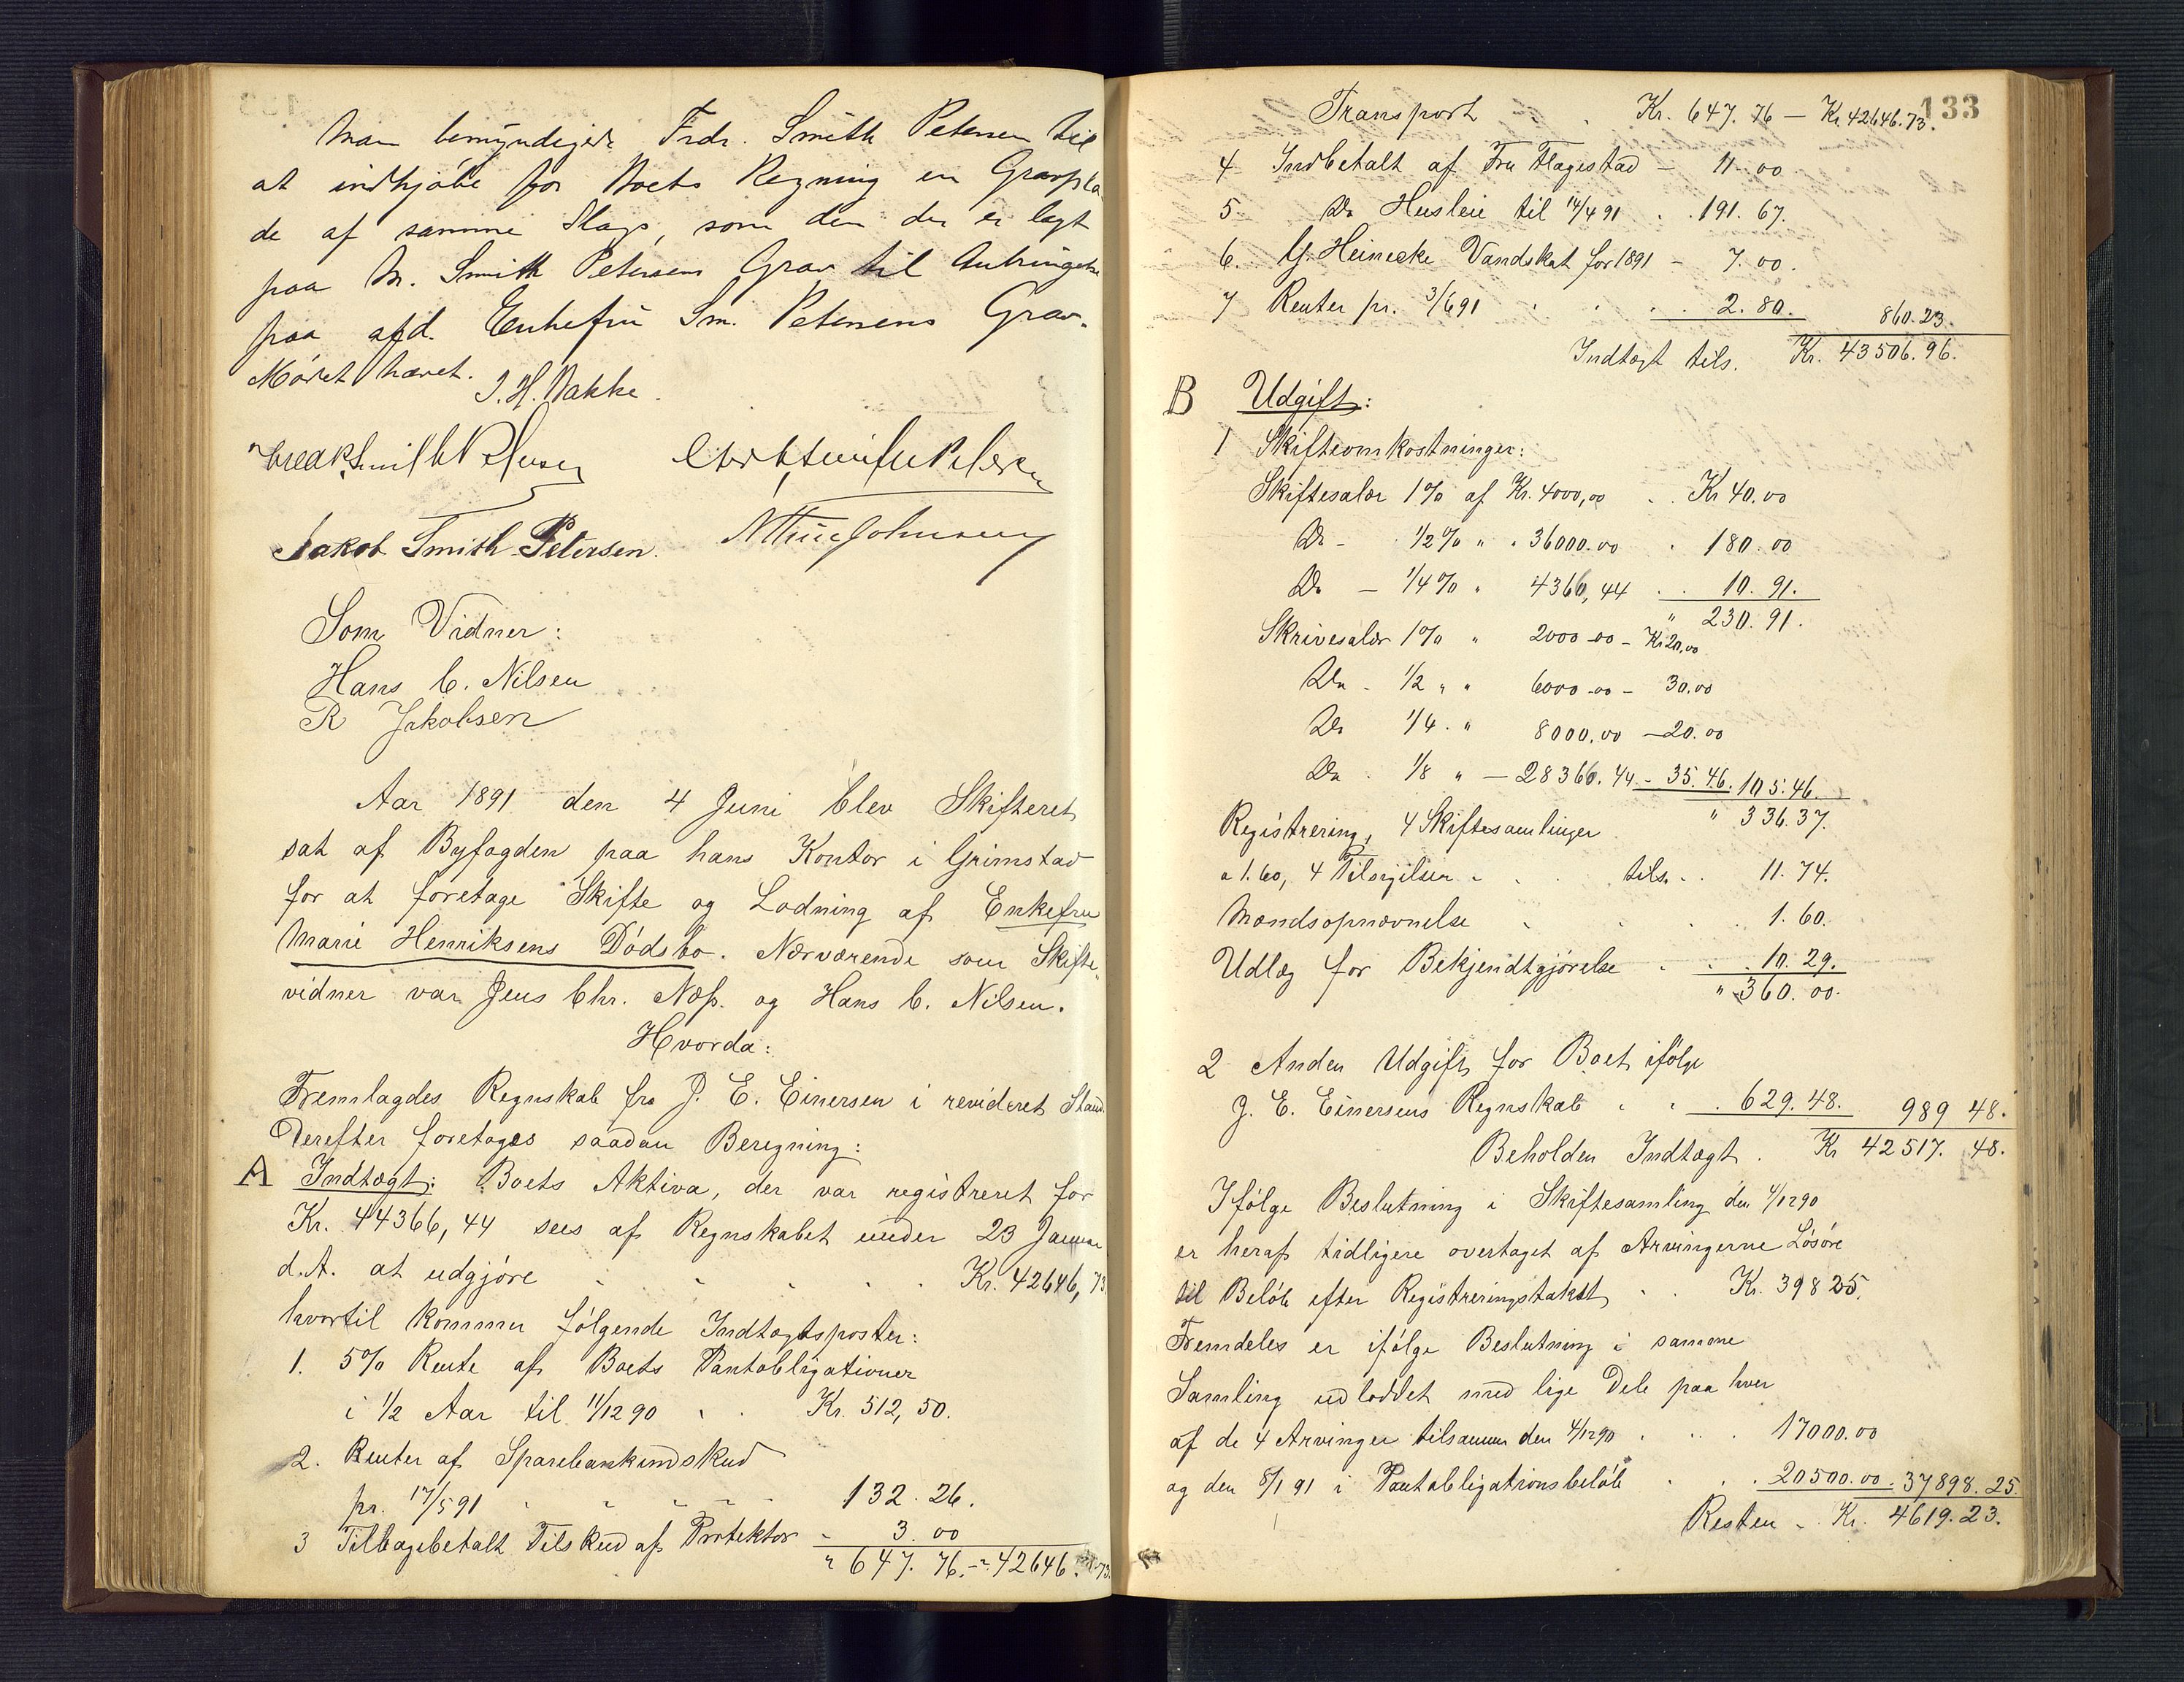 Man bemyndigede Frdr. Smith Petersen til
at indkjøbe for Boets Regning en Gravpla
de af samme Slags, som den der er lagt
paa M. Smith Petersens Grav til Anbringelse
paa afd. Enkefru Sm. Petersens Grav.
Mødet hævet.
J. H. Bakke.
Smith Petersen
Jakob Smith Petersen.
Som Vidner:
Hans C. Nilsen
R Jakobsen
Aar 1891 den 4 Juni blev Skifteret
sat af Byfogden paa hans Kontor i Grimstad
for at foretage Skifte og Lodning af Enkefru
Marie Henriksens Dødsbo. Nærværende som Skifte-
vidner var Jens Chr. Næss. og Hans C. Nilsen.
Hvorda:
Fremlagdes Regnskab fra J. E. Einersen i revideret Stand.
Derefter foretages saadan Beregning:
A Indtægt: Boets Aktiva, der var registreret for
Kr. 44366,44 sees af Regnskabet under 23 Januar
d.A. at udgjøre Kr. 42646,73
hvortil kommer følgende Indtægtsposter:
1. 5% Rente af Boets Pantobligationer
i 1/2 Aar til 11/12 90 Kr. 512,50.
2. Renter af Sparebankindskud
pr. 17/5 91 132.26.
3 Tilbagebetalt Tilskud af Protektor - 3.00
" 647.76.-" 42646.73.
133
Transport Kr. 647.76 - Kr. 42646.73.
4 Indbetalt af Fru Flagestad - 11.00
5. Do Husleie til 14/4 91 . . 191.67.
6. G. Heinecke Vandskat for 1891 - 7.00.
7 Renter pr. 3/6 91 . . . 2.80. 860.23.
Indtægt tils. Kr. 43506.96.
B Udgift:
1 Skifteomkostninger:
Skiftesalær 1% af Kr. 4000,00 . . Kr 40.00
Do - 1/2% " " 36000.00 . 180.00
Do - 1/4% " 4366,44 . . 10.91.
" 230.91.
Skrivesalær 1% " 2000.00 - Kr 20,00
Do - 1/2 " " 6000.00 - 30.00
Do 1/4 . " 8000.00 - 20.00
Do . 1/8 " - 28366.44 - 35.46. 105.46.
" 336.37.
Registrering, 4 Skiftesamlinger
a 1.60, 4 Tilsigelser . . . tils. . 11.74.
Mandsopnævnelse . . . 1.60.
Udlæg for Bekjendtgjørelse . . . 10.29.
" 360.00.
2 Anden Udgift for Boet ifølge
J. E. Einersens Regnskab . . . 629.48. 989 48.
Beholden Indtægt . Kr 42517.48.
Ifølge Beslutning i Skiftesamling den 4/12 90
er heraf tidligere overtaget af Arvingerne Løsøre
til Beløb efter Registreringstakst . . Kr. 398 25.
Fremdeles er ifølge Beslutning i samme
Samling udloddet med lige Dele paa hver
af de 4 Arvinger tilsammen den 4/12 90 . . . 17000.00
og den 8/1 91 i Pantobligationsbeløb . . 20500.00. 37898.25.
Resten . Kr. 4619.23.